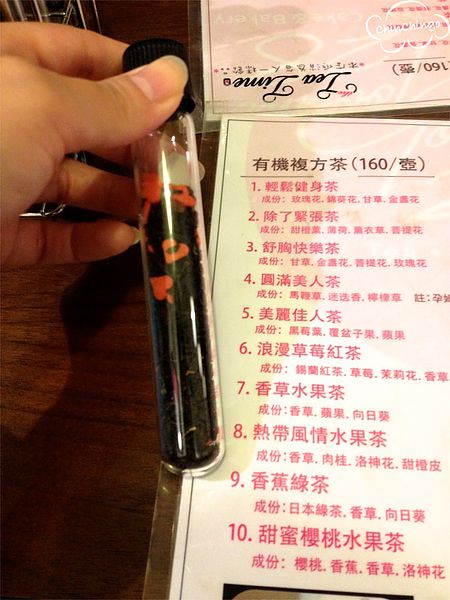 chunchingo
Cake & Bakery
The Tea Time
*本店低消每人一樣飲品*
(160/壺)
有機複方茶(160/壺)
1. 輕鬆健身茶
成份: 玫瑰花. 錦葵花. 甘草. 金盞花
2. 除了緊張茶
成份: 甜橙葉. 薄荷. 薰衣草. 菩提花
3. 舒胸快樂茶
成份: 甘草. 金盞花. 菩提花. 玫瑰花
4. 圓滿美人茶
成份: 馬鞭草. 迷迭香. 檸檬草 註:孕婦
5. 美麗佳人茶
成份: 黑莓葉. 覆盆子果. 蘋果
6. 浪漫草莓紅茶
成份: 錫蘭紅茶. 草莓. 茉莉花. 香草
7. 香草水果茶
成份:香草. 蘋果. 向日葵
8. 熱帶風情水果茶
成份:香草. 肉桂. 洛神花. 甜橙皮
9. 香蕉綠茶
成份:日本綠茶. 香草. 向日葵
10. 甜蜜櫻桃水果茶
成份: 櫻桃. 香蕉. 香草. 洛神花